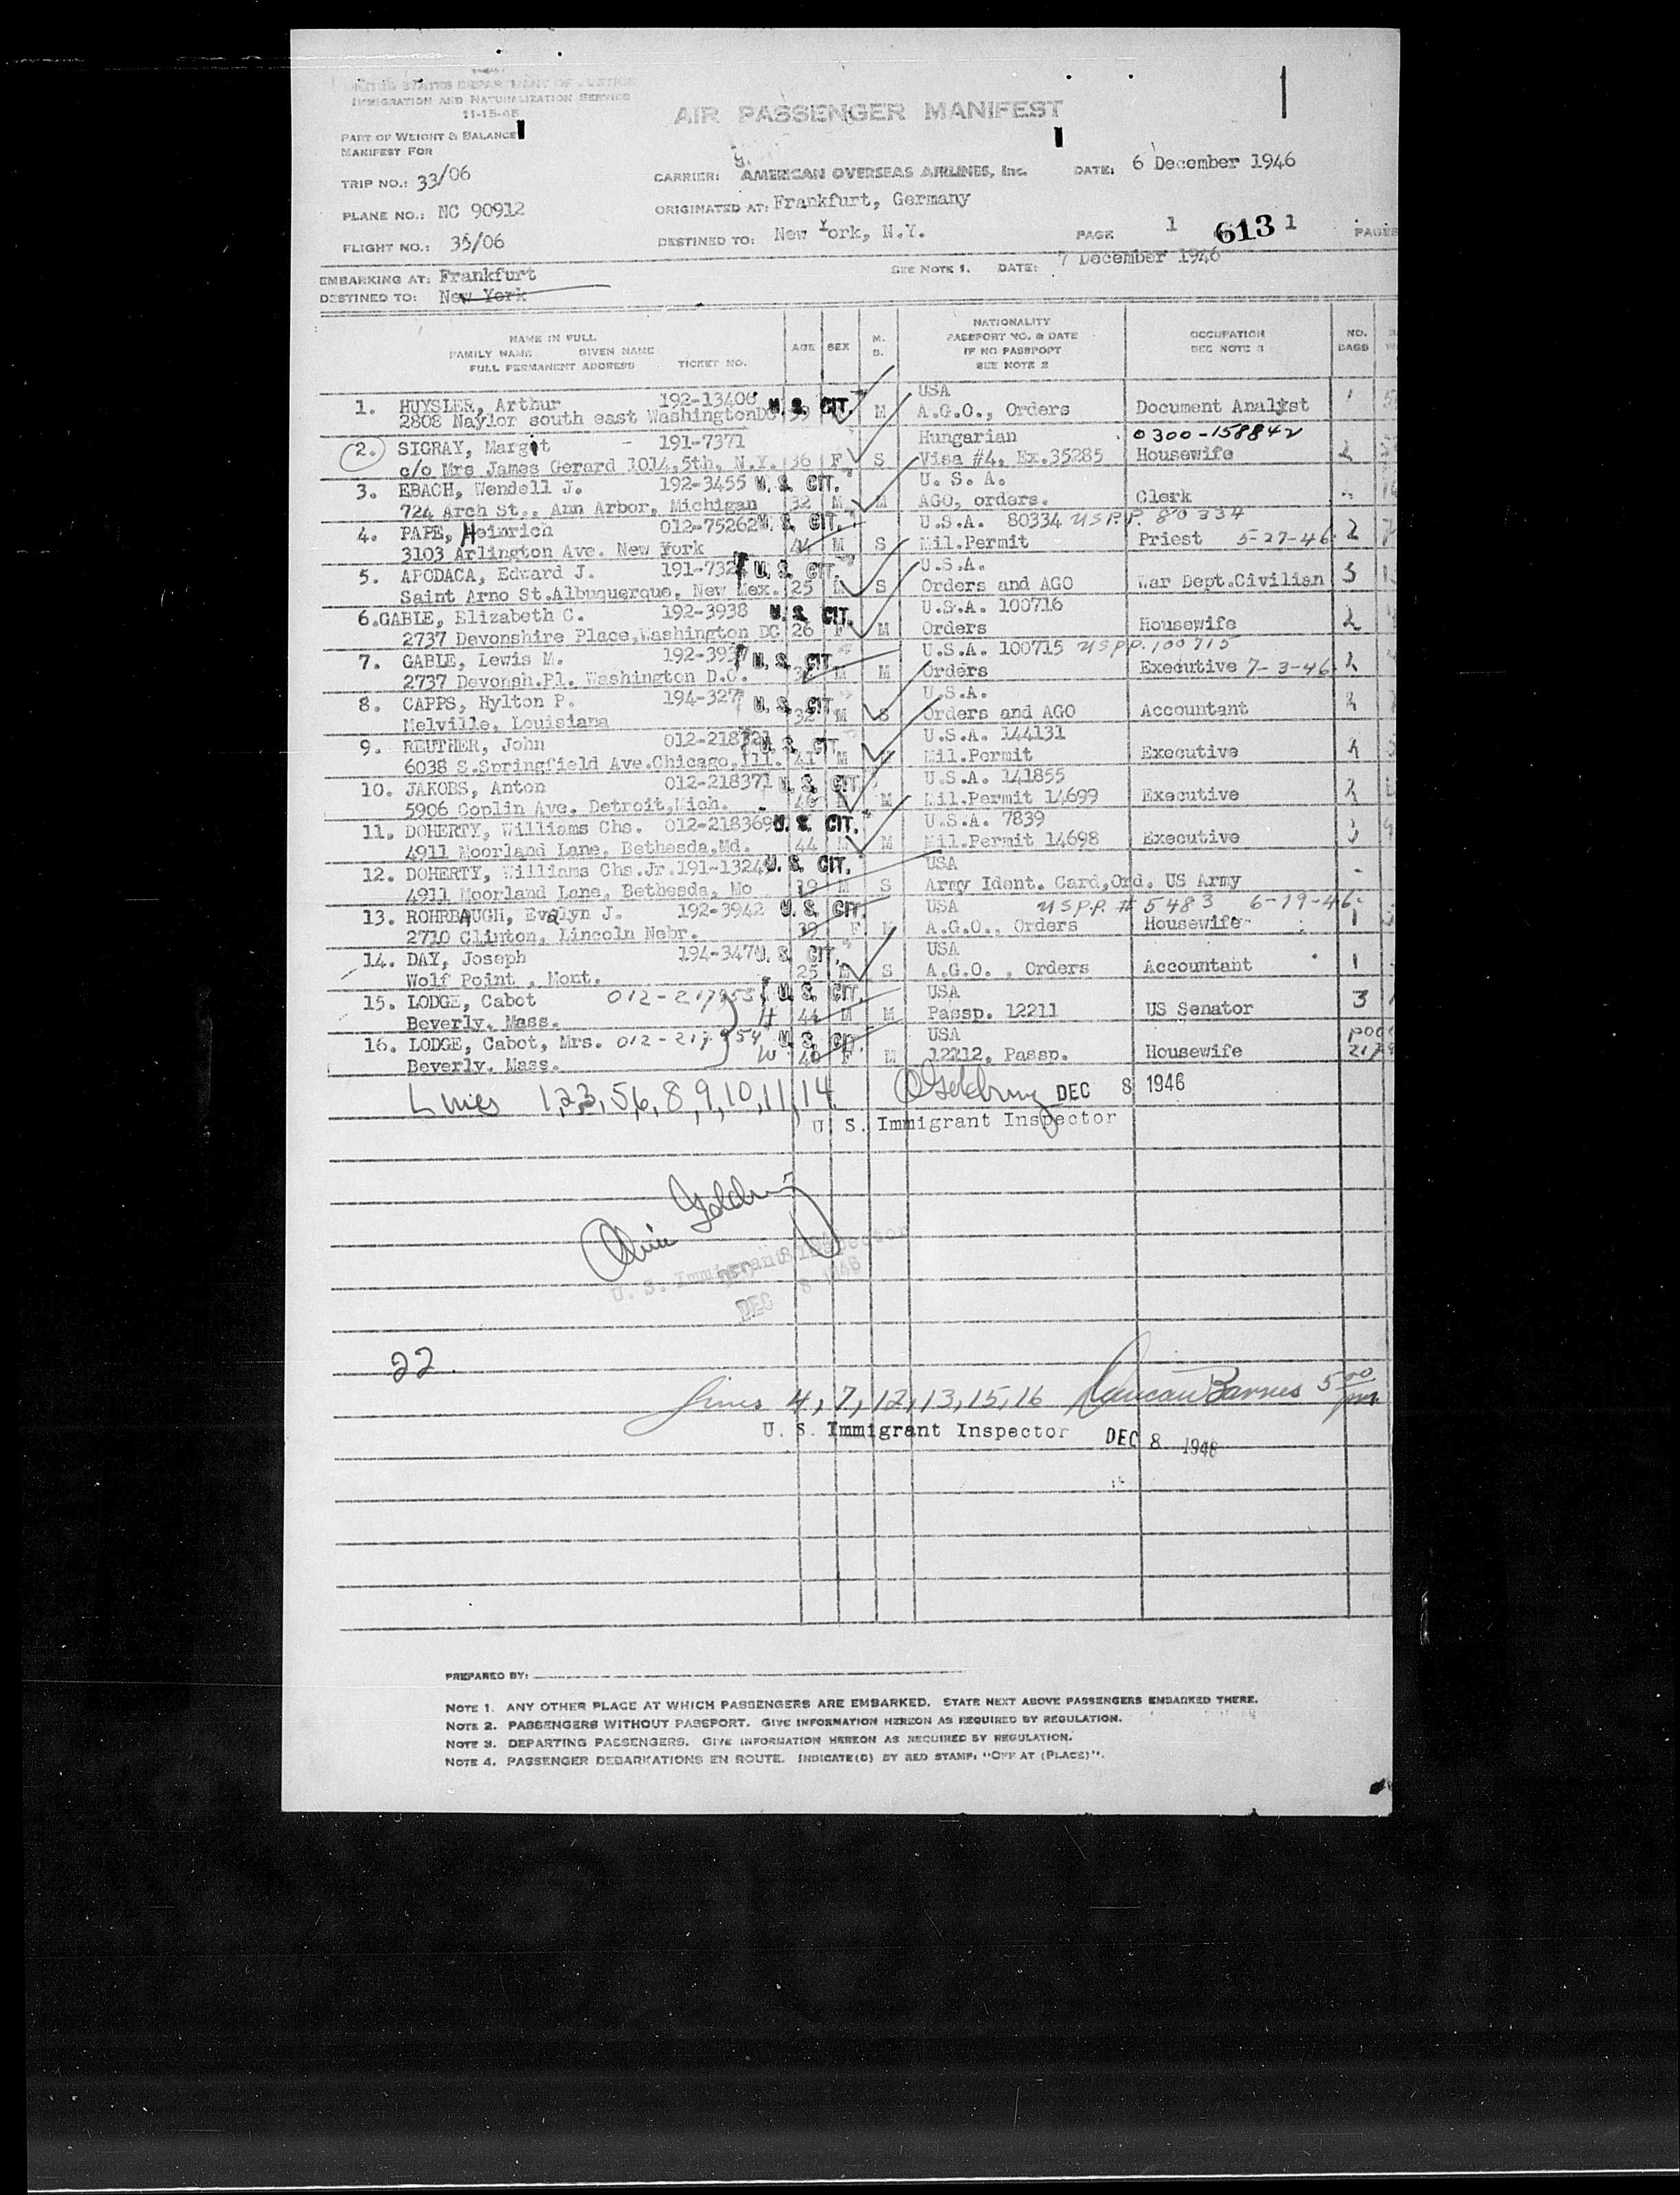 UNITED STATES DEPARTMENT OF JUSTICE
IMMIGRATION AND NATURALIZATION SERVICE
11-15-45
AIR PASSENGER MANIFEST
PART OF WEIGHT & BALANCE
MANIFEST FOR
TRIP NO.: 33/06
CARRIER: AMERICAN OVERSEAS AIRLINES, Inc. DATE: 6 December 1946
PLANE NO.: NC 90912
ORIGINATED AT: Frankfurt, Germany
FLIGHT NO.: 35/06
DESTINED TO: New York, N.Y. PAGE 1 613 1 PAGES
EMBARKING AT: Frankfurt SEE NOTE 1. DATE: 7 December 1946
DESTINED TO: New York
NAME IN FULL
FAMILY NAME GIVEN NAME
FULL PERMANENT ADDRESS TICKET NO.
AGE SEX M. S.
NATIONALITY
PASSPORT NO. & DATE
IF NO PASSPORT
SEE NOTE 2
OCCUPATION
SEE NOTE 3
NO.
BAGS
1. HUYSLER, Arthur 192-13406 U. S. CIT. USA
2808 Naylor south east WashingtonDC 39 M A.G.O., Orders Document Analyst 1
2. SIGRAY, Margit - 191-7371 Hungarian 0300-158842
c/o Mrs James Gerard 1014,5th, N.Y. 36 F S Visa #4, Ex.35285 Housewife 2
3. EBACH, Wendell J. 192-3455 U. S. CIT. U. S. A.
724 Arch St., Ann Arbor, Michigan 32 M M AGO, orders. Clerk
4. PAPE, Heinrich 012-75262 U. S. CIT. U.S.A. 80334 USP.P. 80334
3103 Arlington Ave. New York 44 M S Mil.Permit Priest 5-27-46 2
5. APODACA, Edward J. 191-732 U. S. CIT. U.S.A.
Saint Arno St.Albuquerque, New Mex. 25 M S Orders and AGO War Dept.Civilian 3
6.GABLE, Elizabeth C. 192-3938 U. S. CIT. U.S.A. 100716
2737 Devonshire Place,Washington DC 26 F M Orders Housewife 2
7. GABLE, Lewis M. 192-3937 U. S. CIT. U.S.A. 100715 USP.P. 100715
2737 Devonsh.Pl. Washington D.C. M M Orders Executive 7-3-46 2
8. CAPPS, Hylton P. 194-327 U. S. CIT. U.S.A.
Melville, Louisiana 32 M S Orders and AGO Accountant 2
9. REUTHER, John 012-218 U. S. CIT. U.S.A. 144131
6038 S.Springfield Ave.Chicago,Ill. 41 M Mil.Permit Executive 4
10. JAKOBS, Anton 012-218371 U. S. CIT. U.S.A. 141855
5906 Coplin Ave. Detroit,Mich. 46 M Mil.Permit 14699 Executive 2
11. DOHERTY, Williams Chs. 012-218369 U. S. CIT. U.S.A. 7839
4911 Moorland Lane, Bethesda,Md. 44 M M Mil.Permit 14698 Executive 3
12. DOHERTY, Williams Chs.Jr.191-1324 U. S. CIT. USA
4911 Moorland Lane, Bethesda, Mo 19 M S Army Ident. Card,Ord. US Army -
13. ROHRBAUGH, Evalyn J. 192-3942 U. S. CIT. USA USP.P. #5483 6-19-46
2710 Clinton, Lincoln Nebr. 39 F M A.G.O., Orders Housewife 1
14. DAY, Joseph 194-347 U. S. CIT. USA
Wolf Point , Mont. 25 M S A.G.O. , Orders Accountant 1
15. LODGE, Cabot 012-217953 U. S. CIT. USA
Beverly, Mass. H 44 M M Passp. 12211 US Senator 3
16. LODGE, Cabot, Mrs. 012-217954 U. S. CIT. USA
Beverly, Mass. W 40 F M 12212, Passp. Housewife
Lines 1,2,3,5,6,8,9,10,11,14 OGoldring DEC 8 1946
U. S. Immigrant Inspector
Goldring
U. S. Immigrant Inspector
DEC 8 1946
22
Lines 4,7,12,13,15,16 Duncan Barnes 5 00 pm
U. S. Immigrant Inspector DEC 8 1946
PREPARED BY:
NOTE 1. ANY OTHER PLACE AT WHICH PASSENGERS ARE EMBARKED. STATE NEXT ABOVE PASSENGERS EMBARKED THERE.
NOTE 2. PASSENGERS WITHOUT PASSPORT. GIVE INFORMATION HEREON AS REQUIRED BY REGULATION.
NOTE 3. DEPARTING PASSENGERS. GIVE INFORMATION HEREON AS REQUIRED BY REGULATION.
NOTE 4. PASSENGER DEBARKATIONS EN ROUTE. INDICATE(D) BY RED STAMP: "OFF AT (PLACE)".